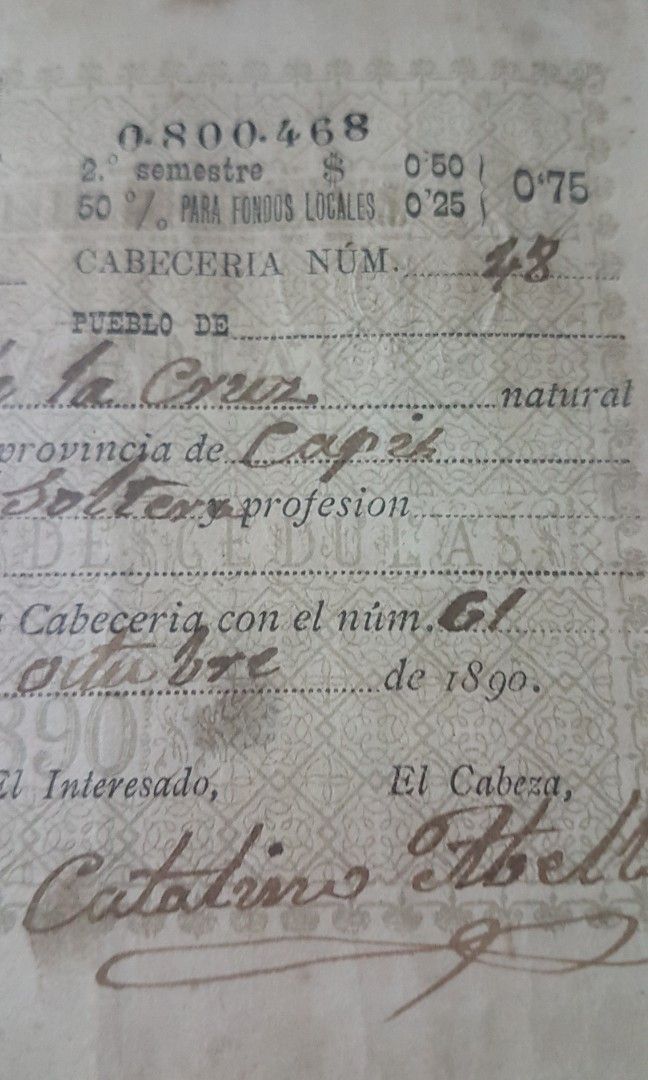 0.800.468
2.º semestre $ 0'50
50 %. PARA FONDOS LOCALES. 0'25 0'75
CABECERIA NÚM. 48
PUEBLO DE
la Cruz natural
provincia de Capiz
Soltera y profesion
DE CEDULAS
Cabeceria con el núm. 61
octubre de 1890.
890
El Interesado, El Cabeza,
Catalino Abell